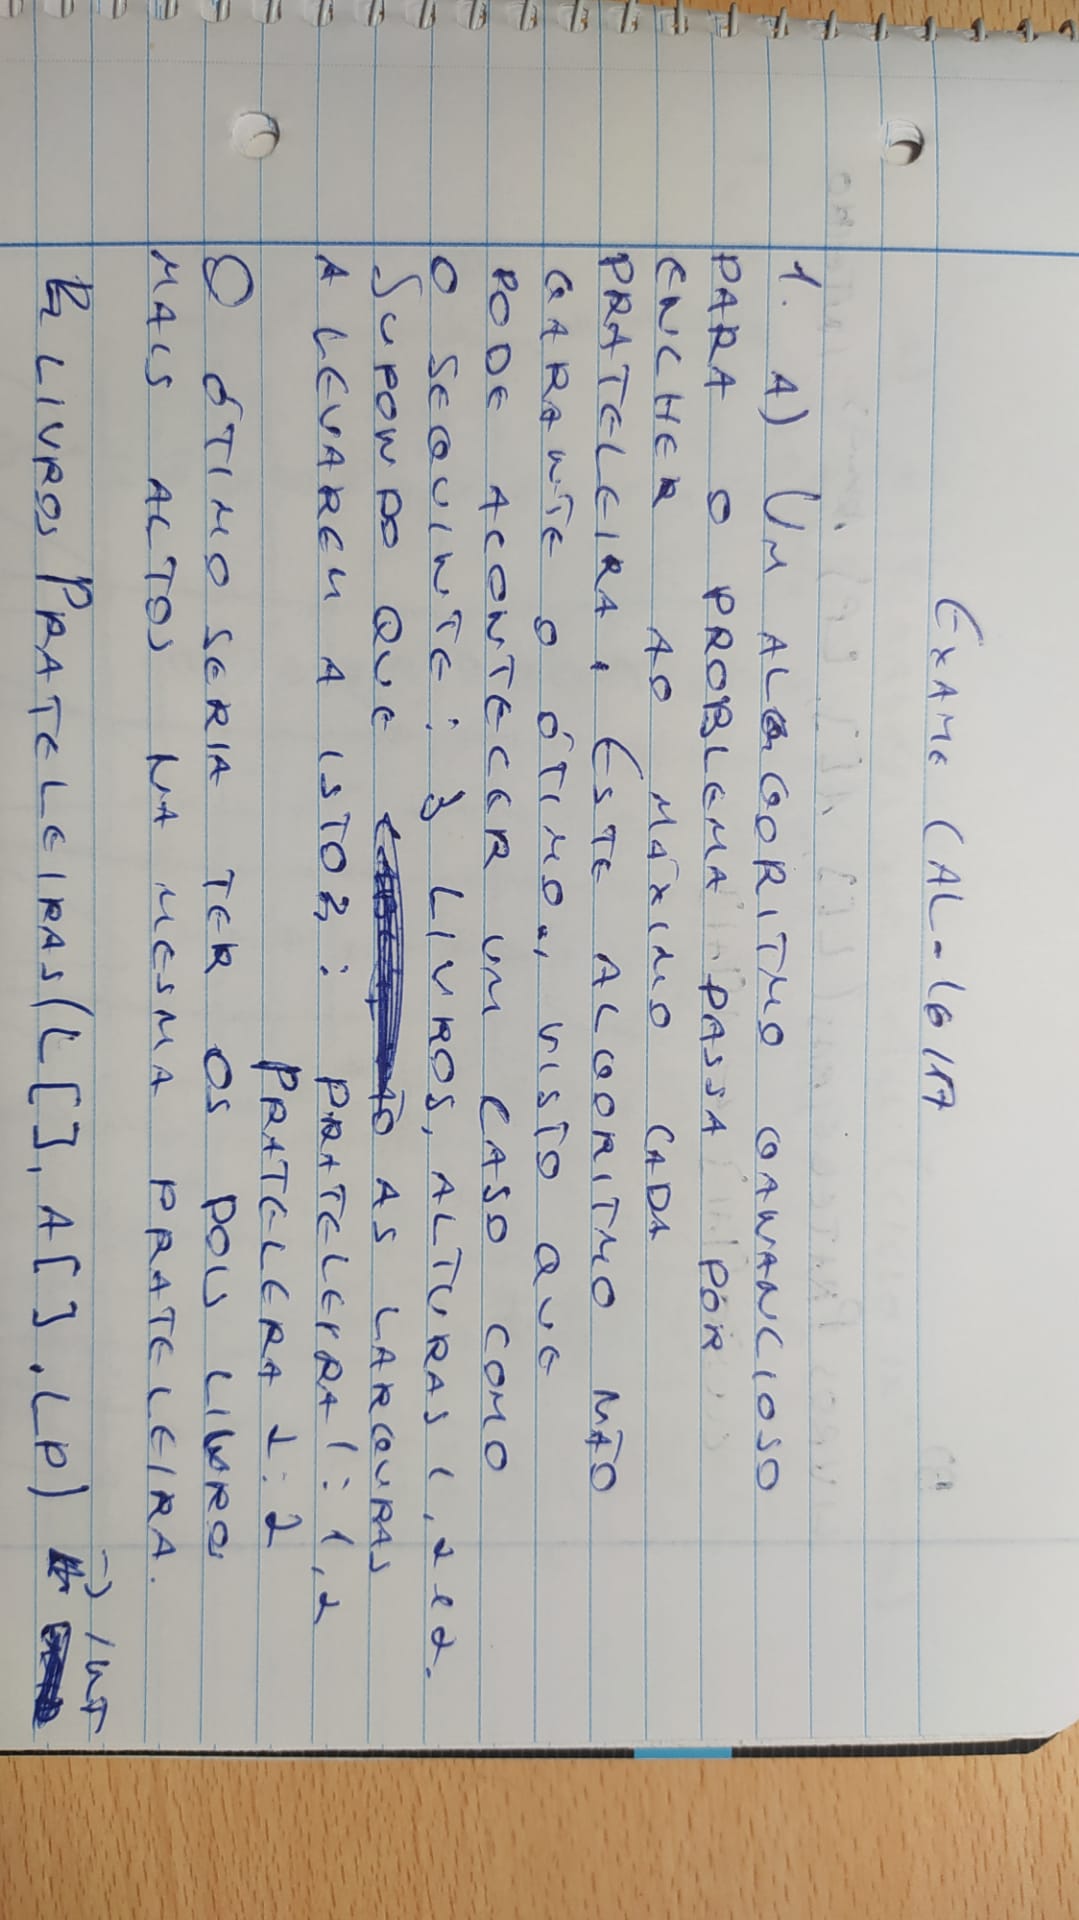 EXAME CAL-16/17
1. A) UM ALGORITMO GANANCIOSO
PARA O PROBLEMA PASSA POR
ENCHER AO MÁXIMO CADA
PRATELEIRA. ESTE ALGORITMO NÃO
GARANTE O ÓTIMO., VISTO QUE
PODE ACONTECER UM CASO COMO
O SEGUINTE: 3 LIVROS, ALTURAS 1, 2 e 2.
SUPONDO QUE AS LARGURAS
A LEVAREM A ISTO: PRATELEIRA 1: 1, 2
PRATELERA 2: 2
O ÓTIMO SERIA TER OS DOIS LIVROS
MAIS ALTOS NA MESMA PRATELEIRA.
B LIVROS PRATELEIRAS(L[], A[], LP) → INT